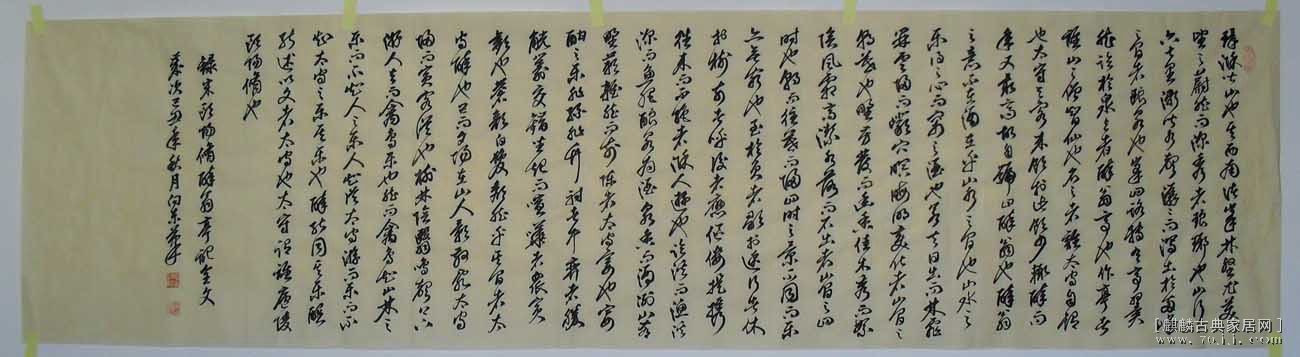 環滁皆山也其西南諸峰林壑尤美
望之蔚然而深秀者琅琊也山行
六七里漸聞水聲潺潺而瀉出於兩峰
之間者釀泉也峰回路轉有亭翼
然臨於泉上者醉翁亭也作亭者
誰山之僧智仙也名之者誰太守自謂
也太守與客來飲於此飲少輒醉而
年又最高故自號曰醉翁也醉翁
之意不在酒在乎山水之間也山水之
樂得之心而寓之酒也若夫日出而林霏
開雲歸而巖穴暝晦明變化者山間之
朝暮也野芳發而幽香佳木秀而繁
陰風霜高潔水落而石出者山間之四
時也朝而往暮而歸四時之景不同而樂
亦無窮也至於負者歌於途行者休
於樹前者呼後者應傴僂提攜
往來而不絕者滁人遊也臨溪而漁溪
深而魚肥釀泉為酒泉香而酒洌山肴
野蔌雜然而前陳者太守宴也宴
酣之樂非絲非竹射者中弈者勝
觥籌交錯坐起而喧嘩者眾賓
歡也蒼顏白髮頹然乎其間者太
守醉也已而夕陽在山人影散亂太守
歸而賓客從也樹林陰翳鳴聲上下
遊人去而禽鳥樂也然而禽鳥知山林之
樂而不知人之樂人知從太守遊而樂而不
知太守之樂其樂也醉能同其樂醒
能述以文者太守也太守謂誰廬陵
歐陽修也
錄宋歐陽修醉翁亭記全文
歲次己丑年秋月
[麒麟古典家居网]
www.7qjj.com